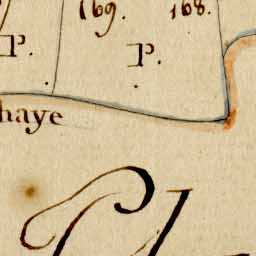 169. 168.
P. P.
haye